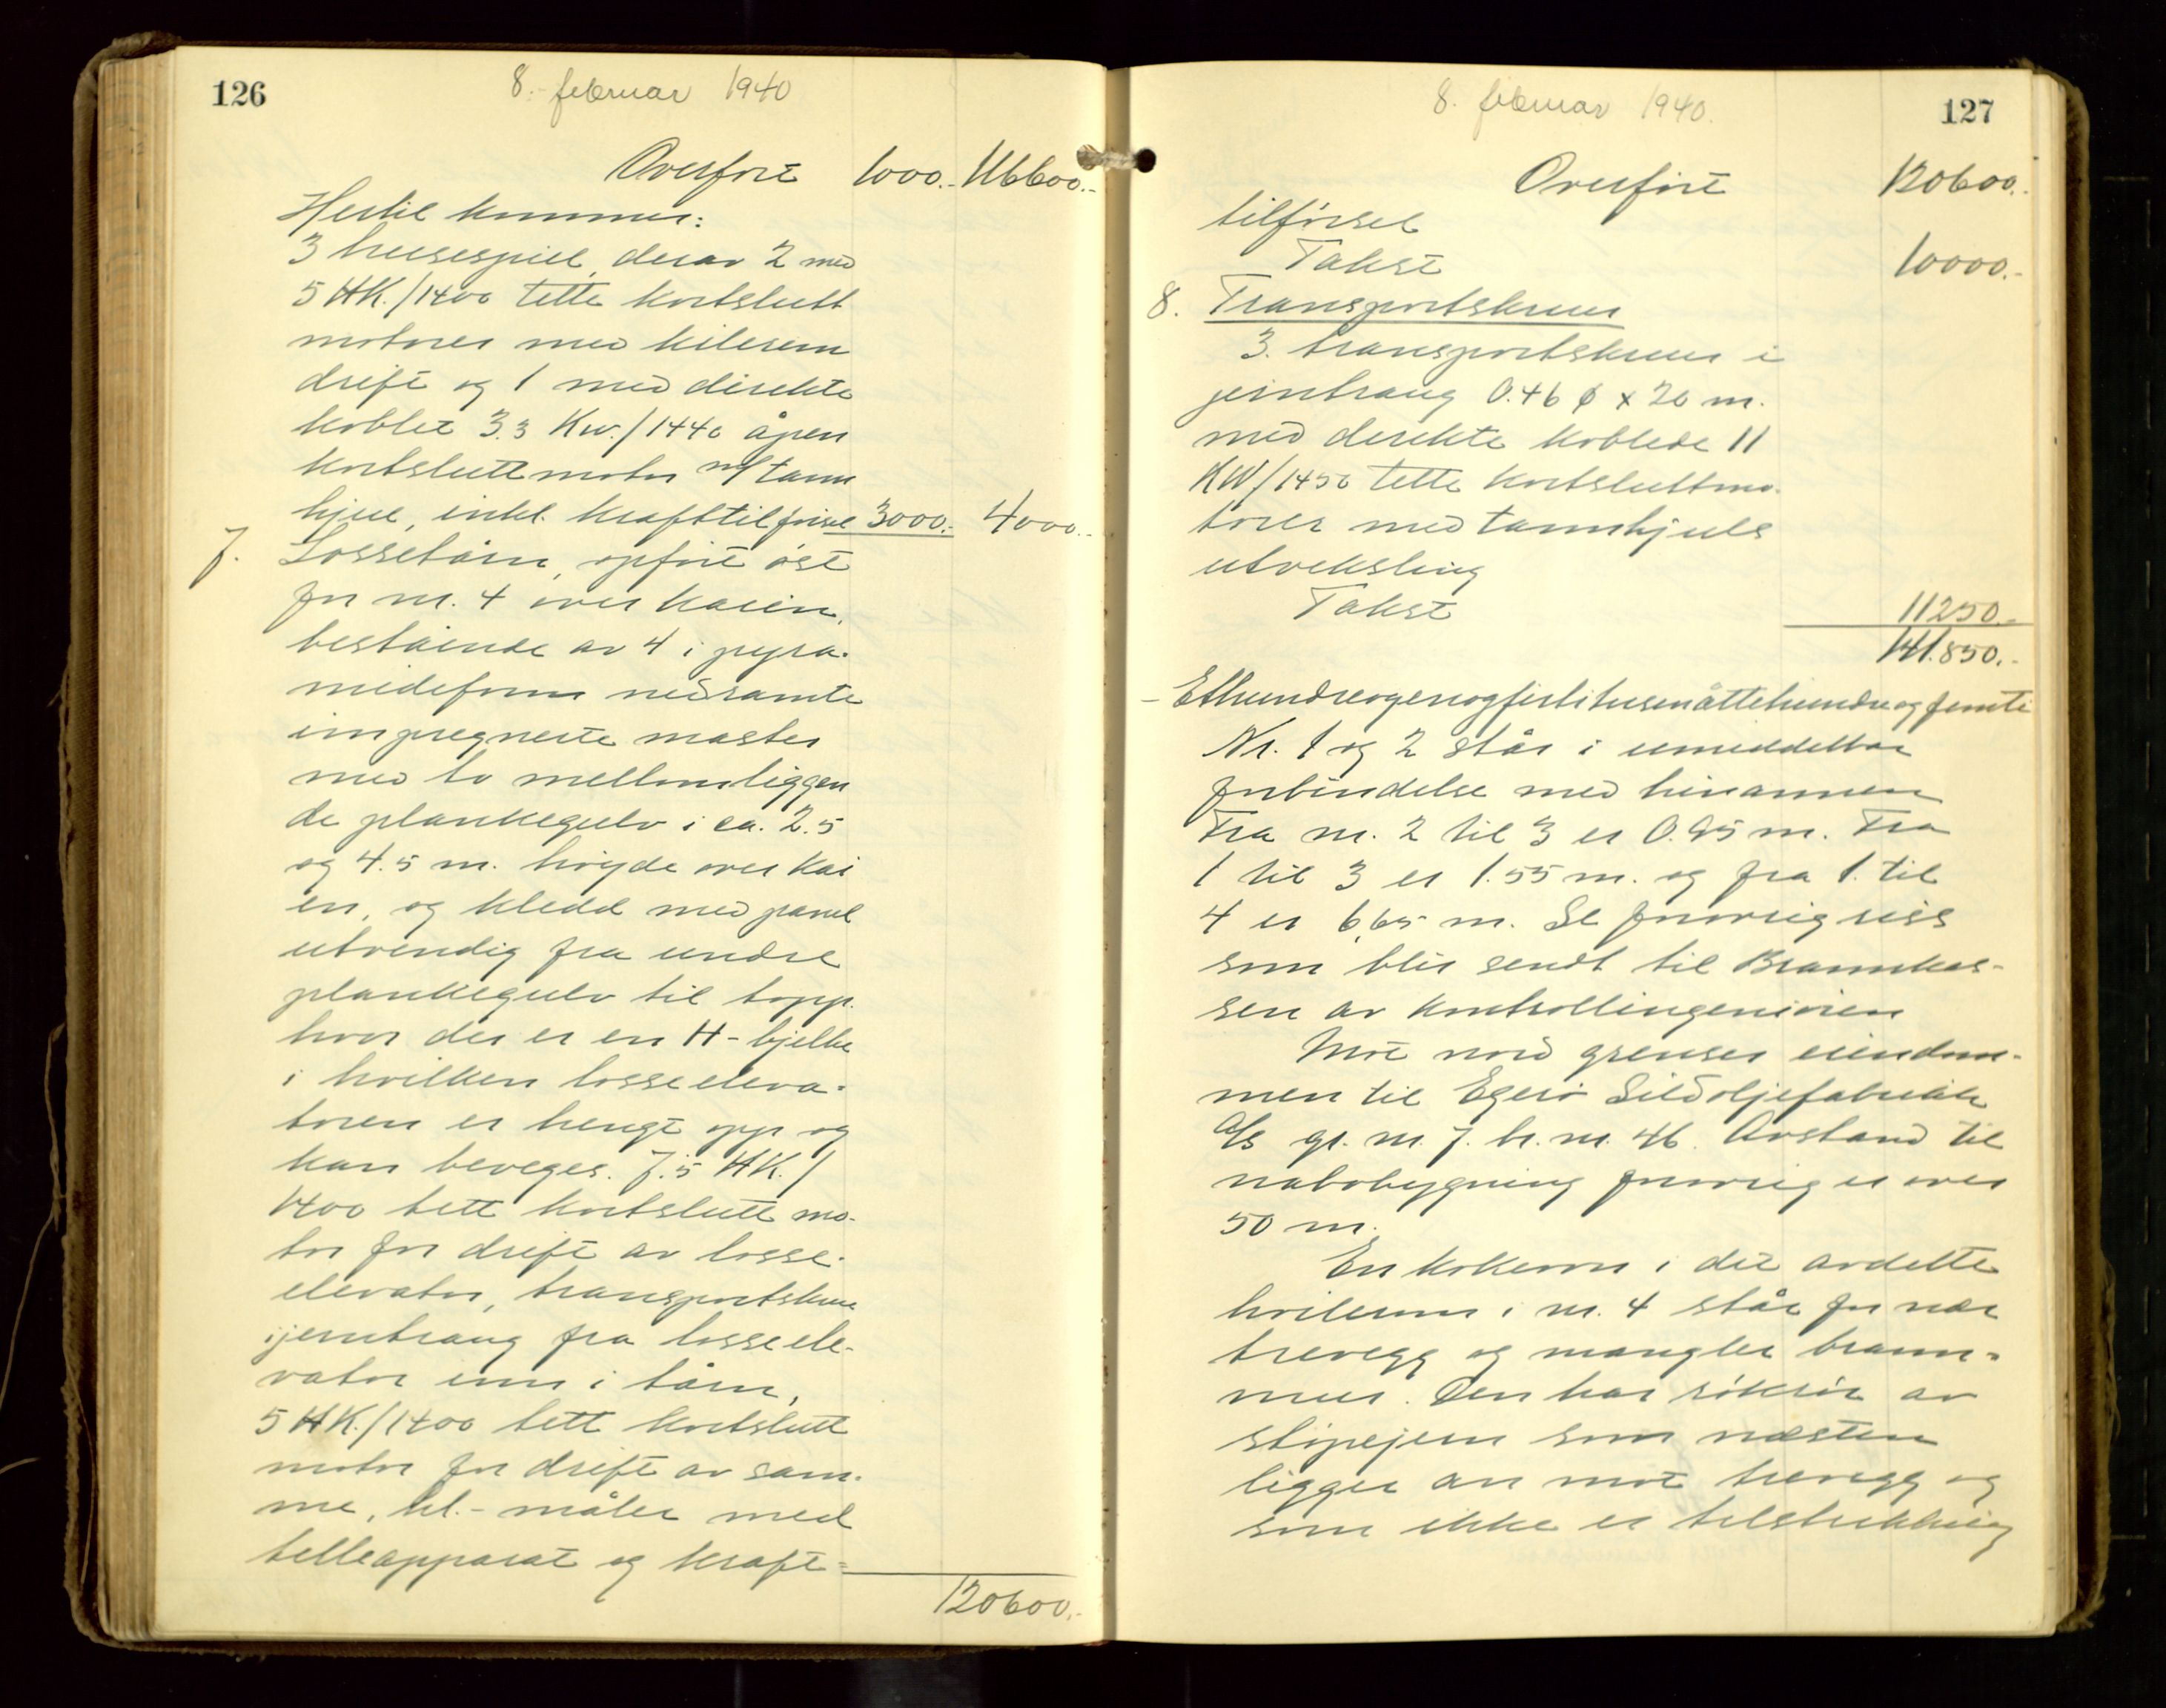 126
8. februar 1940
Overført 1000.- 116600.-
Hertil kommer:
3 heisespill, derav 2 med
5 HK./1400 tette kortslutt
motorer med kilerem
drift og 1 med direkte
koblet 3.3 Kw./1440 åpen
kortsluttmotor m/tann
hjul, inkl. krafttilførsel 3000.- 4000.-
7. Lossetårn, opført øst
for nr. 4 over kaien,
bestående av 4 i pyra-
mideform nedramte
impregnerte master
med to mellomliggen
de plankegulv i ca. 2.5
og 4.5 m. høyde over kai
en, og kledd med panel
utvendig fra undre
plankegulv til topp.
hvor der er en H-bjelke
i hvilken losseeleva-
toren er hengt opp og
kan beveges. 7.5 HK./
1400 tett kortslutt mo-
tor for drift av losse-
elevator, transportskrue
i jerntraug fra losseele-
vator inn i tårn,
5 HK./1400 tett kortslutt
motor for drift av sam-
me, hl.-måler med
telleapparat og kraft-
120600.-
127
8. februar 1940.
Overført 120600.-
tilførsel
Takst 10000.-
8. Transportskruer
3. transportskruer i
jerntraug 0.46 ϕ x 20 m.
med direkte koblede 11
KW/1450 tette kortsluttmo-
torer med tannhjuls
utveksling
Takst 11250.-
141.850.-
- Etthundreogenogførtitusenåttehundreogfemti
Nr. 1 og 2 står i umiddelbar
forbindelse med hinannen
Fra nr. 2 til 3 er 0.95 m. Fra
1 til 3 er 1.55 m. og fra 1. til
4 er 6,65 m. Se forøvrig riss
som blir sendt til Brannkas-
sen av kontrollingeniøren
Mot nord grenser eiendom-
men til Egerø Sildoljefabrikk
A/S gr. nr. 7. br. nr. 46. Avstand til
nabobygning forøvrig er over
50 m.
En kokeovn i det avdelte
hvilerum i nr. 4 står for nær
trevegg og mangler brann-
mur. Den har røkrør av
støpejern som næsten
ligger an mot trevegg og
som ikke er tilstrekkelig